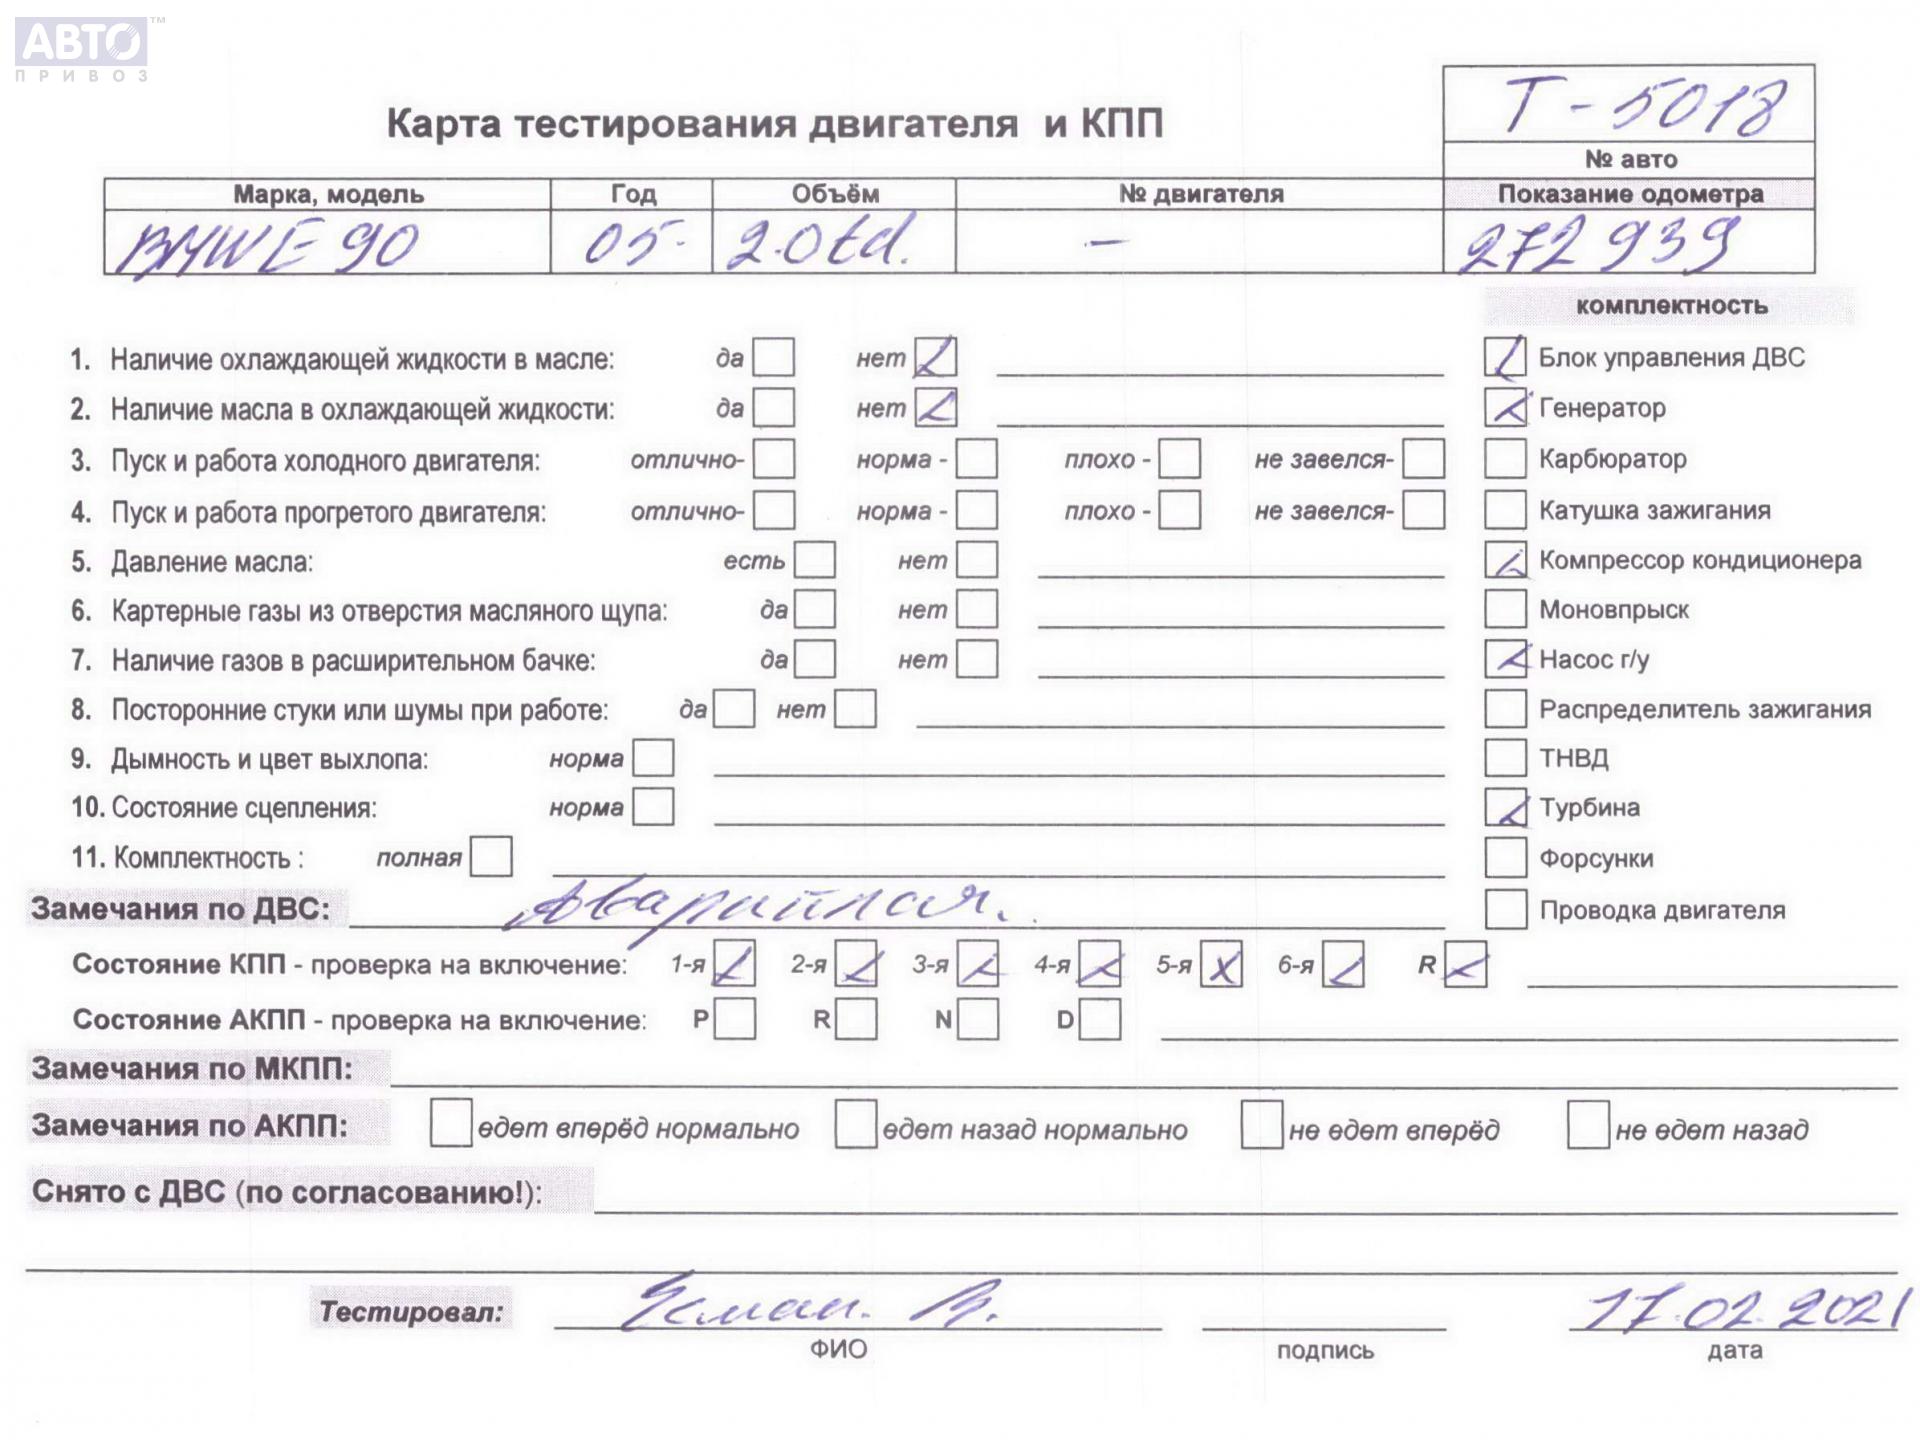 АВТО™
ПРИВОЗ
Т-5018
Карта тестирования двигателя и КПП
№ авто
Марка, модель Год Объём № двигателя Показание одометра
BMW E 90 05. 2.0td. — 272 939
комплектность
1. Наличие охлаждающей жидкости в масле: да нет Блок управления ДВС
2. Наличие масла в охлаждающей жидкости: да нет Генератор
3. Пуск и работа холодного двигателя: отлично- норма - плохо - не завелся- Карбюратор
4. Пуск и работа прогретого двигателя: отлично- норма - плохо - не завелся- Катушка зажигания
5. Давление масла: есть нет Компрессор кондиционера
6. Картерные газы из отверстия масляного щупа: да нет Моновпрыск
7. Наличие газов в расширительном бачке: да нет Насос г/у
8. Посторонние стуки или шумы при работе: да нет Распределитель зажигания
9. Дымность и цвет выхлопа: норма ТНВД
10. Состояние сцепления: норма Турбина
11. Комплектность : полная Форсунки
Замечания по ДВС: Аварийная. Проводка двигателя
Состояние КПП - проверка на включение: 1-я 2-я 3-я 4-я 5-я 6-я R
Состояние АКПП - проверка на включение: P R N D
Замечания по МКПП:
Замечания по АКПП: едет вперёд нормально едет назад нормально не едет вперёд не едет назад
Снято с ДВС (по согласованию!):
Тестировал: В. 17.02.2021
ФИО подпись дата